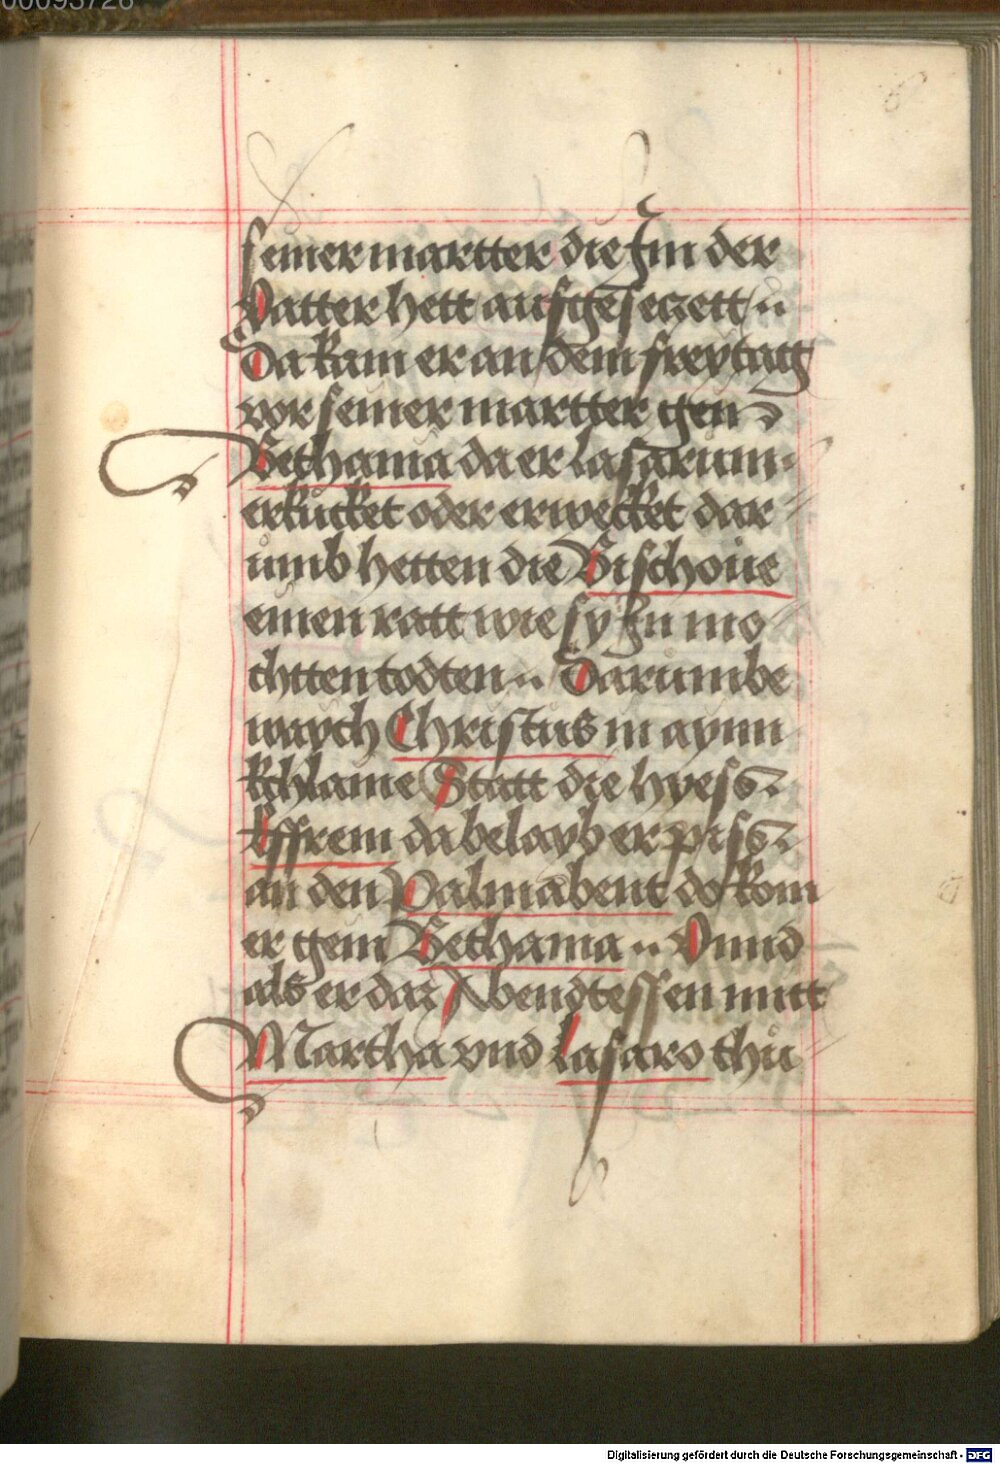 00093728
6
seiner martter die Jm der
Vatter hett aufgeseczett ..
Da kam er an dem freytag
vor seiner martter gen
Bethania da er lasarum
erkücket oder erwecket dar
umb hetten die Bischoue
einen ratt wie sy Jn mo
chtten todten .. Darumbe
waych Christus in aynn
khlaine Statt die hyess
Effrem da belayb er piss
an den Palmabent do kom
er gem Bethania .. Vnnd
als er daz Abendtessen mitt
Martha vnd lasaro thu
Digitalisierung gefördert durch die Deutsche Forschungsgemeinschaft - DFG